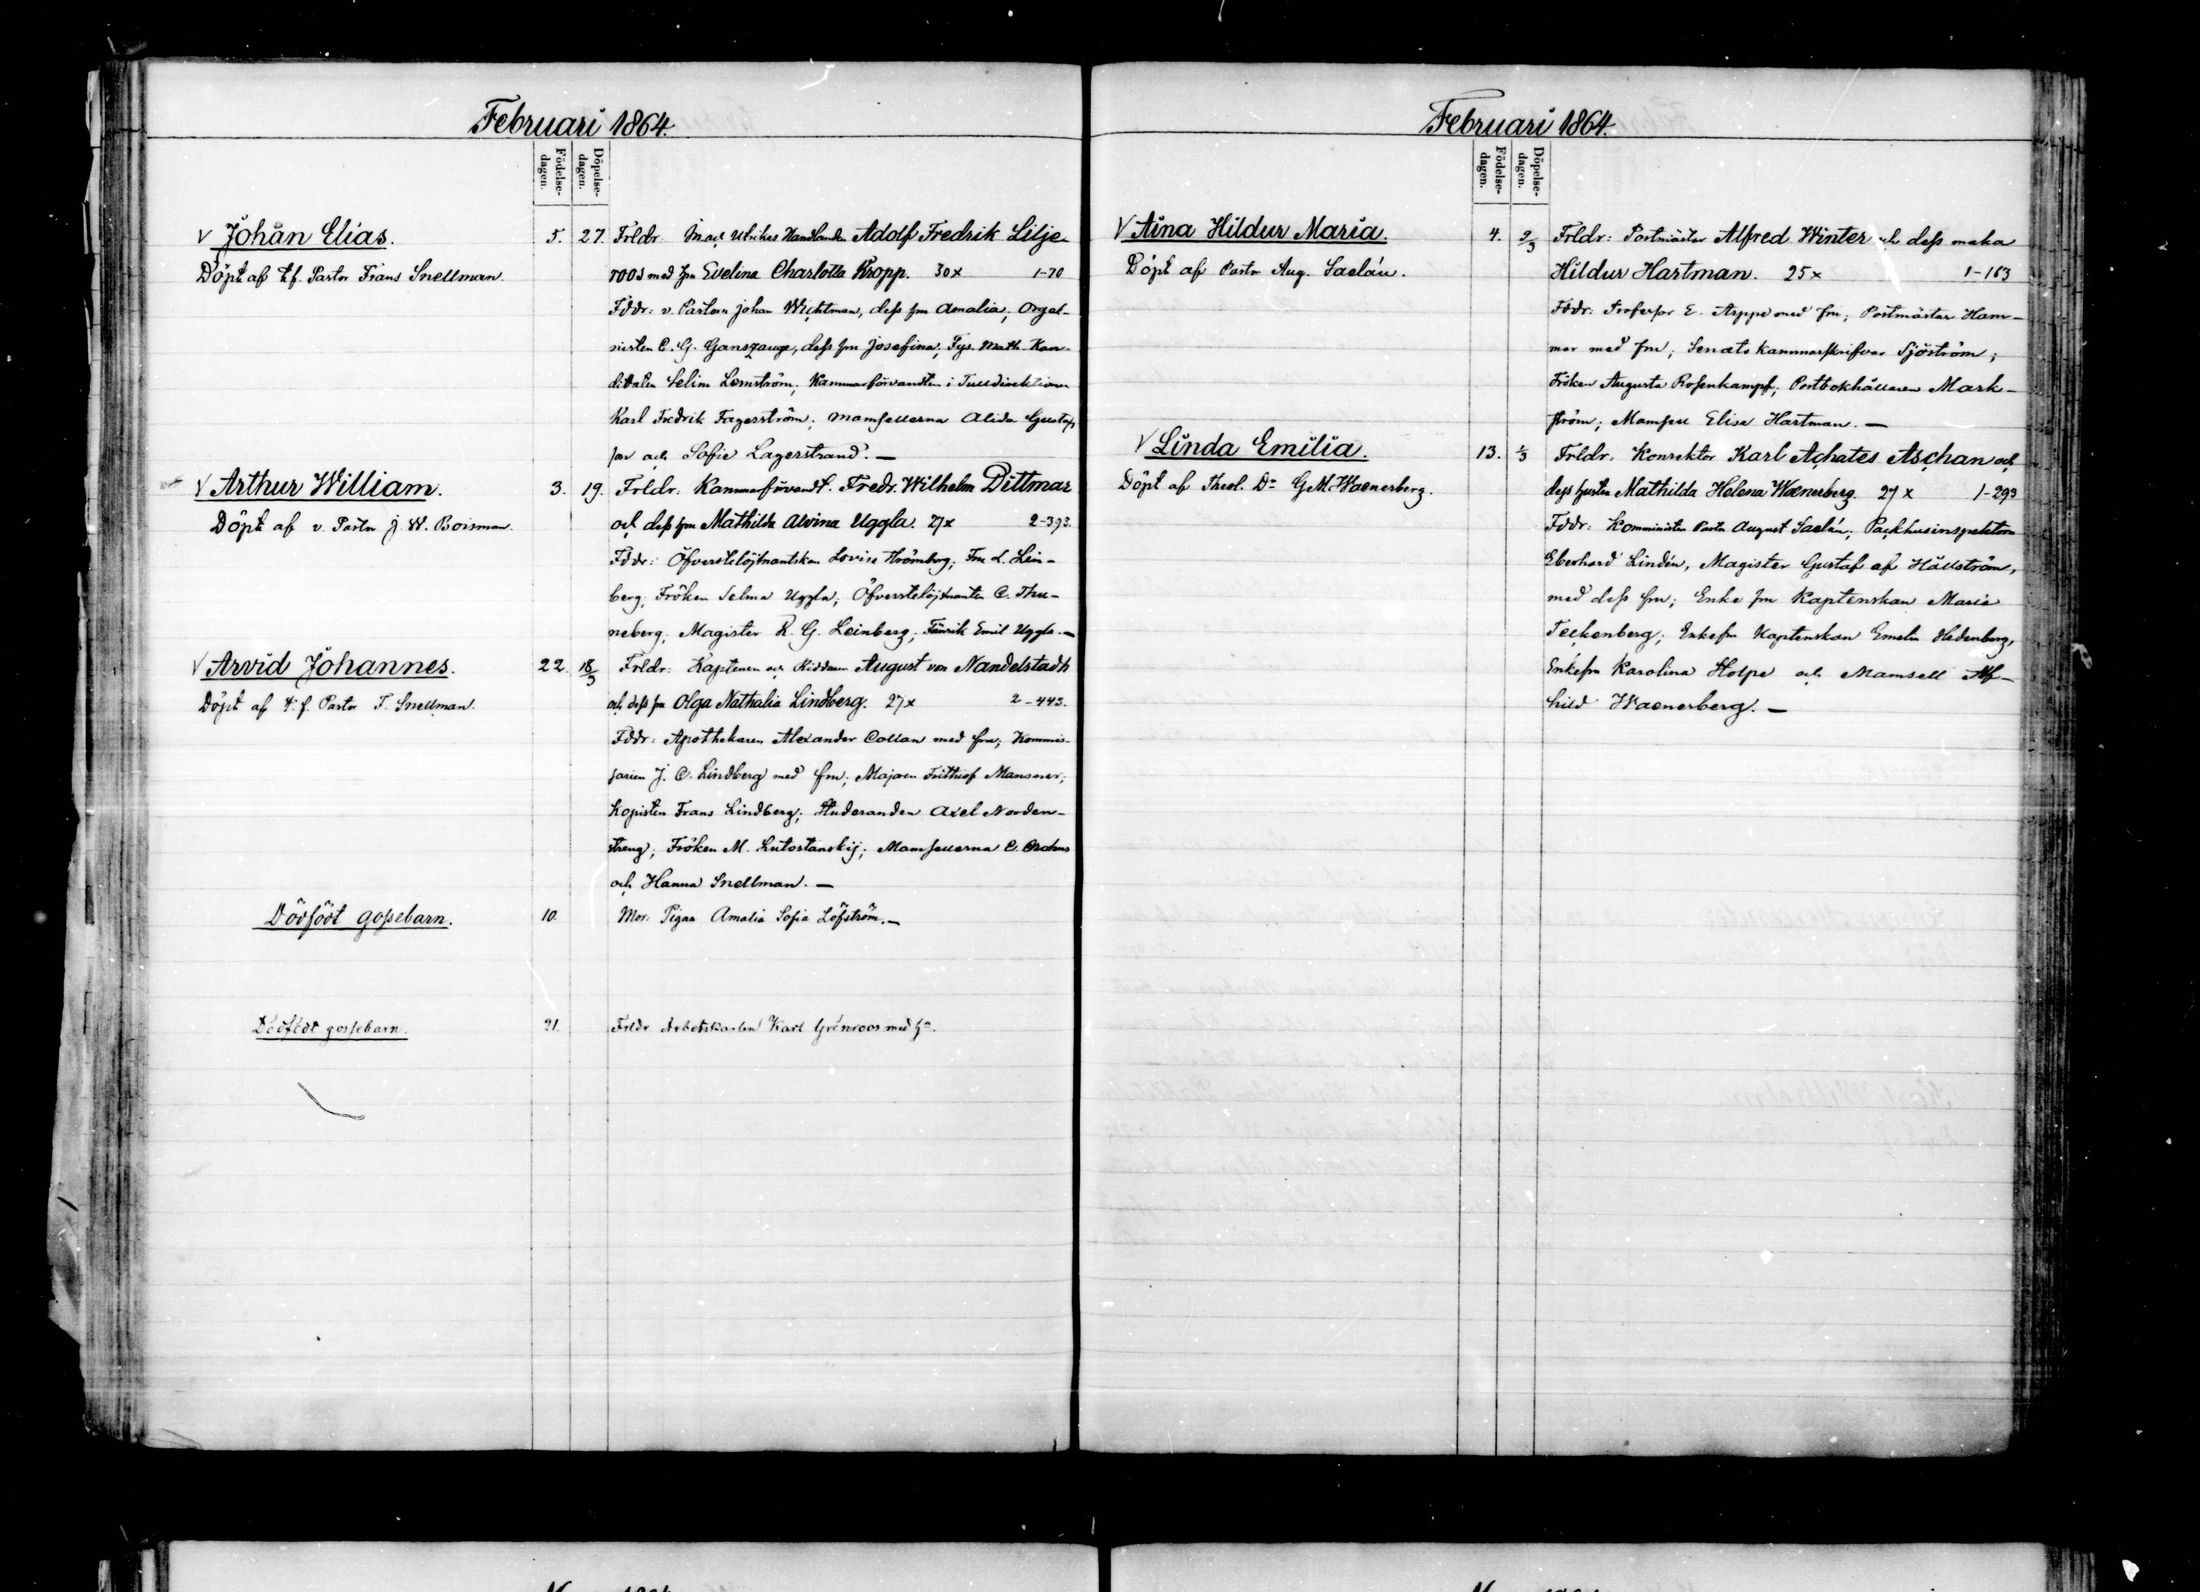 Februari 1864.
Födelse-dagen.
Döpelse-dagen.
v Johan Elias.
5. 27. Frldr: In och Utrikes Handlanden Adolf Fredrik Lilje-
Döpt af t.f. Pastor Frans Snellman.
roos med fru Evelina Charlotta Kropp. 30x 1-70
Fddr: v. Pastorn Johan Wichtman, dess fru Amalia; Orgel-
nisten C. G. Ganszauge, dess fru Josefina; Fys. Math. Kan-
didaten Selim Lemström; Kammarförvandten i Tulldirektionen
Karl Fredrik Fagerström; mamsellerna Alida Gustafs
son och Sofie Lagerstrand. —
v Arthur William.
3. 19. Frldr: Kammarförvandt. Fredr. Wilhelm Dittmar
Döpt af v. Pastor J. W. Boisman.
och dess fru Mathilda Alvina Uggla. 27x 2-393.
Fddr: Öfverstelöjtnantskan Lovisa Strömberg; Fru L. Lein-
berg; Fröken Selma Uggla; Öfverstelöjtnanten C. Thu-
neberg; Magister K. G. Leinberg; Fänrik Emil Uggla. —
v Arvid Johannes.
22. 18/3 Frldr: Kaptenen och Riddaren August von Nandelstadh
Döpt af t.f. Pastor F. Snellman.
och dess fru Olga Nathalia Lindberg. 27x 2-443.
Fddr: Apothekaren Alexander Collan med fru; Kommis-
sarien J. C. Lindberg med fru; Majoren Frithiof Mansner;
Kopisten Frans Lindberg; Studeranden Axel Norden-
streng; Fröken M. Lutostanskij; Mamsellerna C.
och Hanna Snellman. —
Dödfödt gossebarn.
10. Mor: Pigan Amalia Sofia Löfström. —
Dödfödt gossebarn.
21. Frldr Arbetskarlen Karl Grönroos med hu.
Februari 1864.
Födelse-dagen.
Döpelse-dagen.
v Aina Hildur Maria.
4. 9/3 Frldr: Postmäster Alfred Winter och dess maka
Döpt af Pastor Aug. Saelán.
Hildur Hartman. 25x 1-163
Fddr: Professor E. Arppe med fru; Postmäster Ham-
mar med fru; Senats kammarskrifvar Sjöström;
Fröken Augusta Rosenkampf; Postbokhållaren Mark-
ström; Mamsell Elise Hartman. —
v Linda Emilia.
13. 1/3 Frldr: Konrektor Karl Achates Aschan och
Döpt af Theol. Dr G. M. Waenerberg.
dess hustru Mathilda Helena Waenerberg. 27x 1-293
Fddr: Komminister Pastor August Saelán; Packhusinspektorn
Eberhard Lindén, Magister Gustaf af Hällström,
med dess fru; Enke fru Kaptenskan Maria
Teckenberg; Enkefru Kaptenskan Emelie Hedenberg,
Enkefru Karolina Holpe och Mamsell Alf-
hild Waenerberg. —